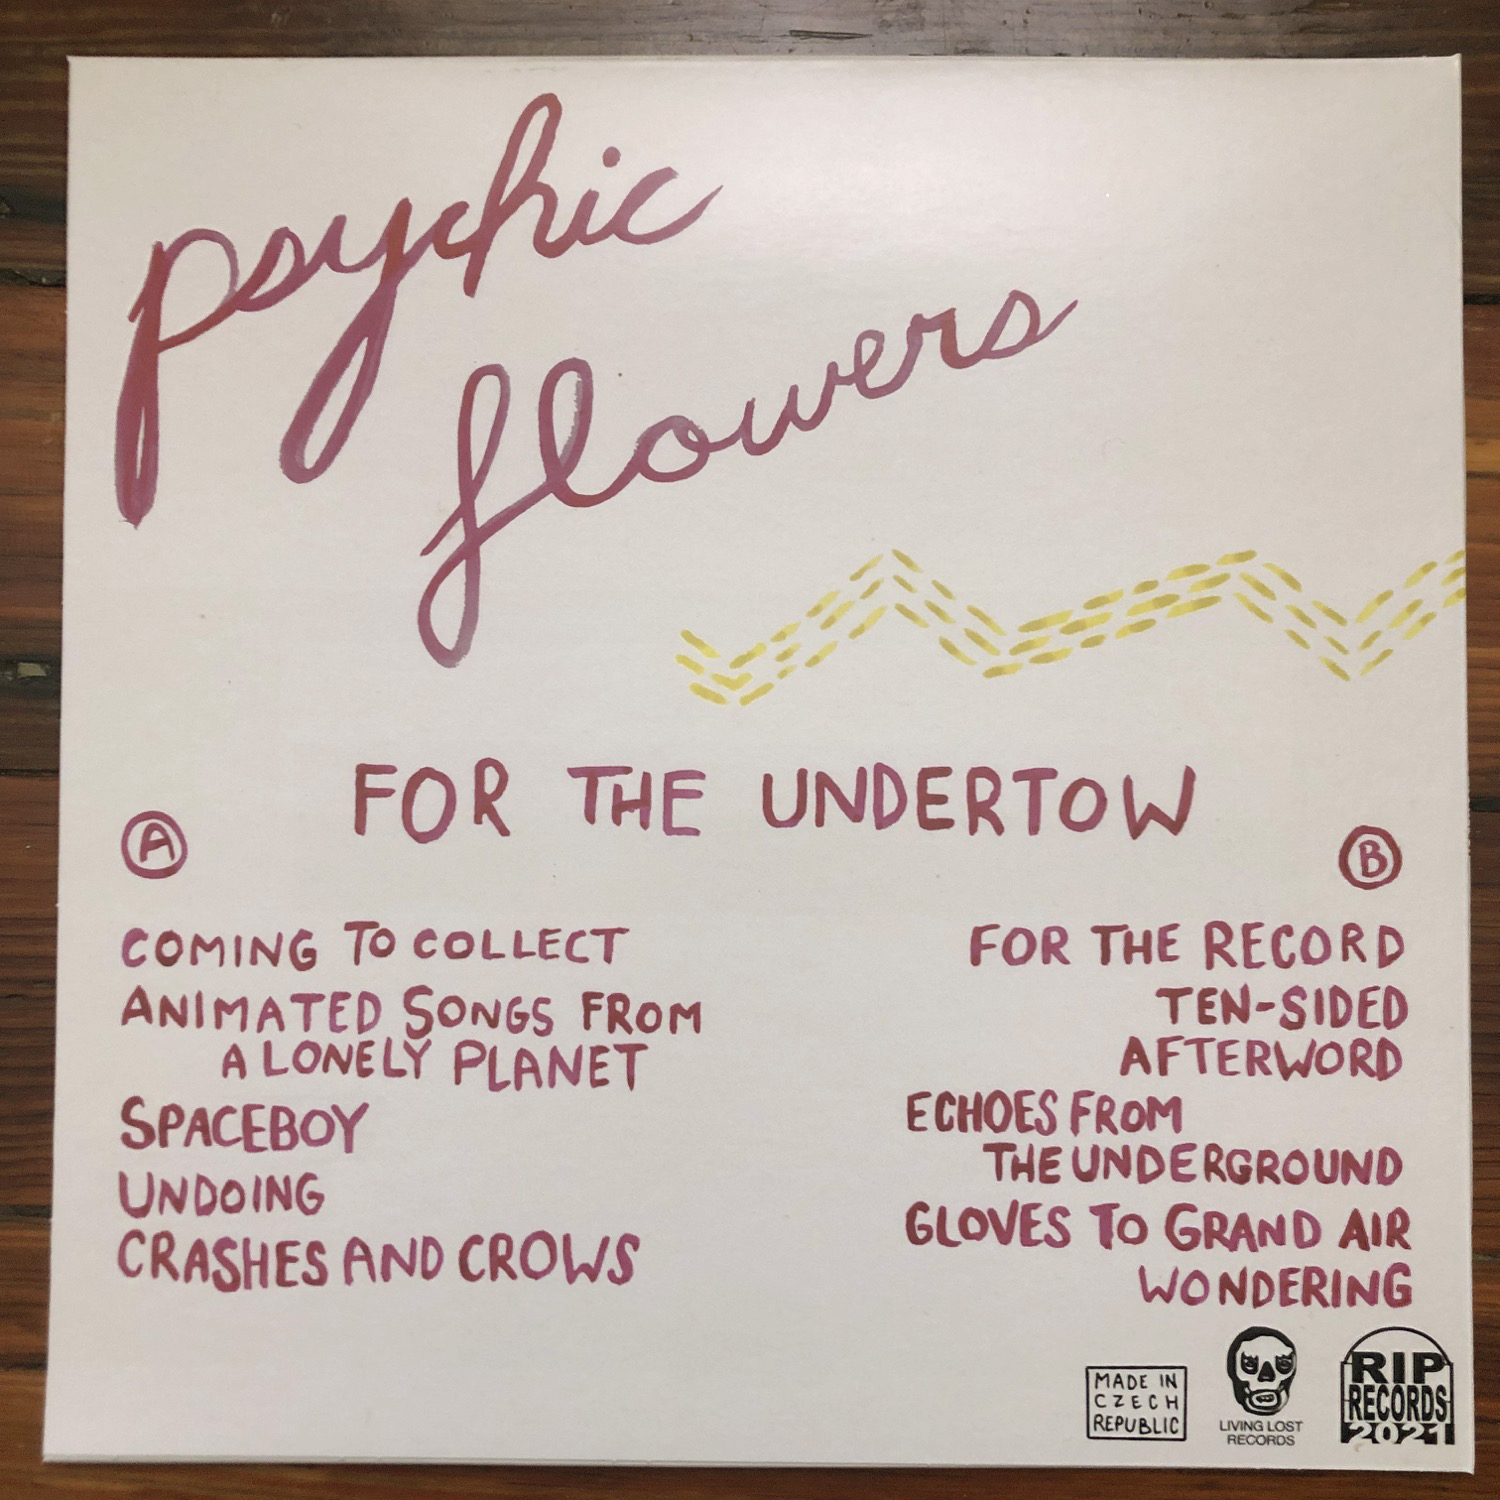 psychic
flowers
FOR THE UNDERTOW
A
COMING TO COLLECT
ANIMATED SONGS FROM
A LONELY PLANET
SPACEBOY
UNDOING
CRASHES AND CROWS
B
FOR THE RECORD
TEN-SIDED
AFTERWORD
ECHOES FROM
THE UNDERGROUND
GLOVES TO GRAND AIR
WONDERING
MADE IN
CZECH
REPUBLIC
LIVING LOST
RECORDS
RIP
RECORDS
2021